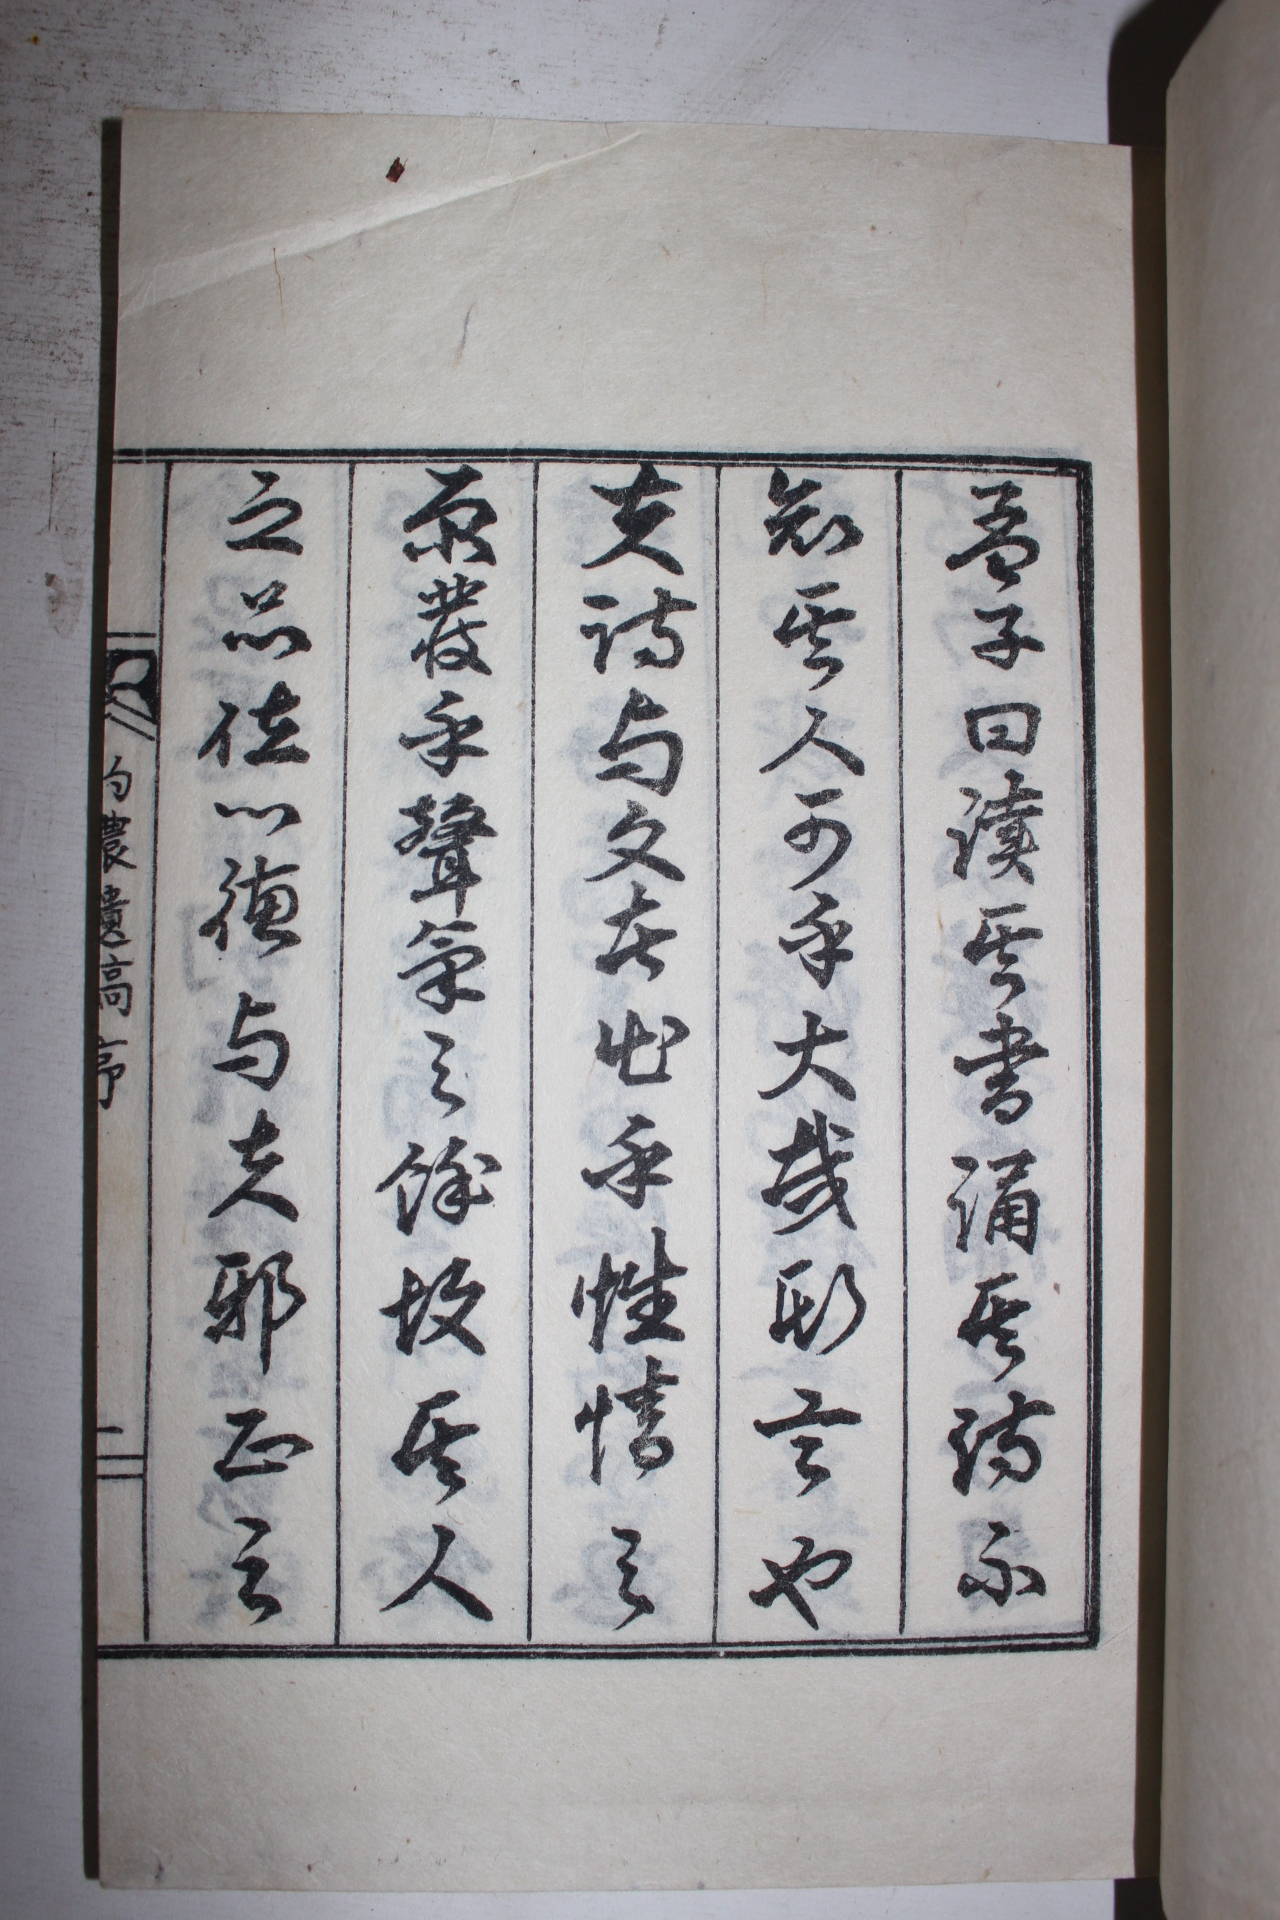 孟子曰讀其書誦其詩不
知其人可乎大哉斯言也
夫詩与文者出乎性情之
原發乎聲氣之餘故其人
之品位心德与夫邪正
農遺稿序
一